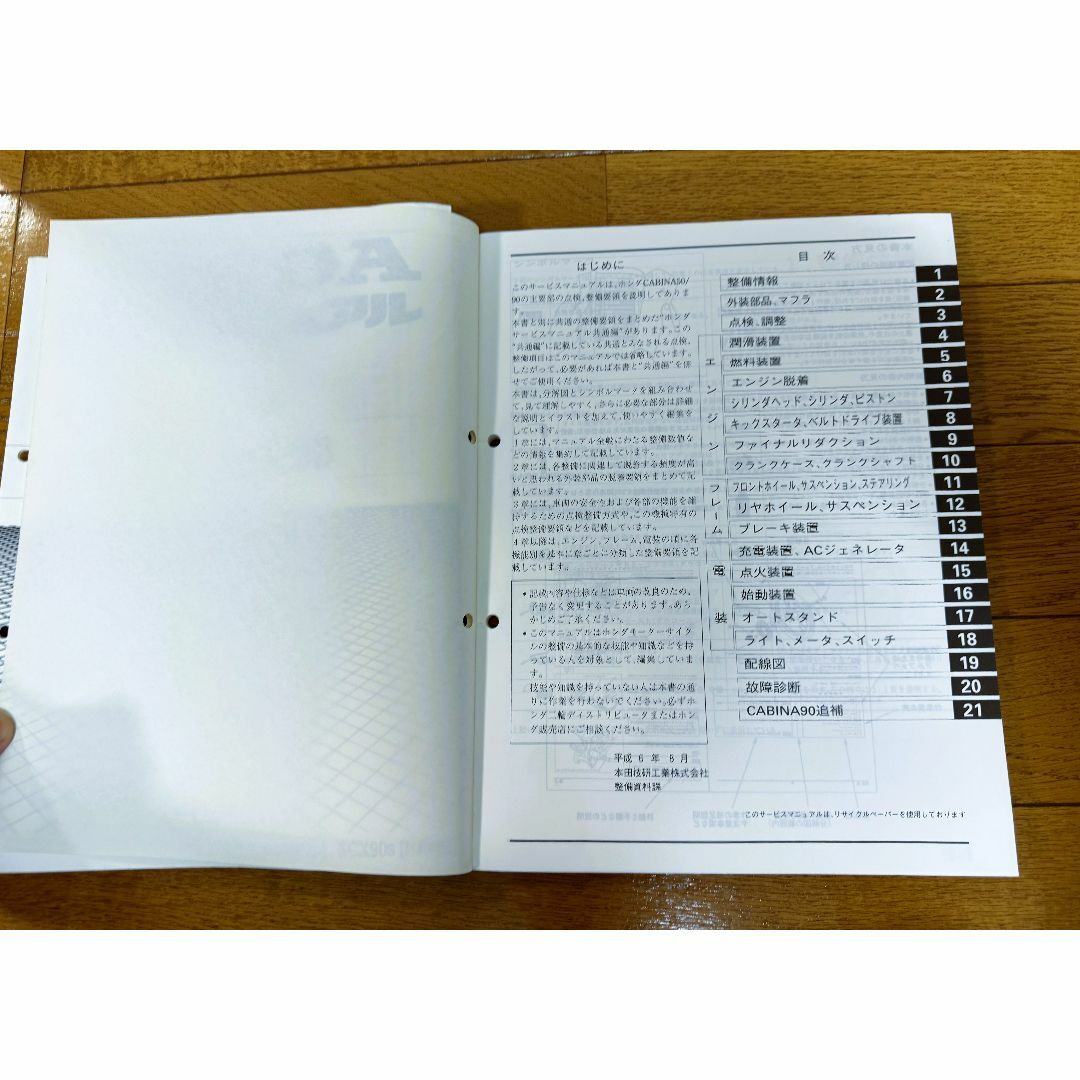 はじめに
このサービスマニュアルは、ホンダCABINA50/
90の主要部の点検、整備要領を説明してありま
す。
本書と別に共通の整備要領をまとめた"ホンダ
サービスマニュアル共通編"があります。この
"共通編"に記載している共通とみなされる点検、
整備項目はこのマニュアルでは省略しています。
したがって、必要があれば本書と"共通編"を併
せてご使用ください。
本書は、分解図とシンボルマークを組み合わせ
て、見て理解しやすく、さらに必要な部分は詳細
な説明とイラストを加えて、使いやすく編集を
しています。
1章には、マニュアル全般にわたる整備数値な
どの情報を集約して記載しています。
2章には、各整備に関連して脱着する頻度が高
いと思われる外装部品の脱着要領をまとめて記
載しています。
3章には、車両の安全および各部の機能を維
持するための点検整備方式や、この機種特有の
点検整備要領などを記載しています。
4章以降は、エンジン、フレーム、電装の順に各
機能別を基本に章ごとに分類した整備要領を記
載しています。
・記載内容や仕様などは車両の改良のため、
予告なく変更することがあります。あら
かじめご了承ください。
・このマニュアルはホンダモーターサイク
ルの整備の基本的な技能や知識などを持
っている人を対象として、編集していま
す。
技能や知識を持っていない人は本書の通
りに作業を行わないでください。必ずホ
ンダ二輪ディストリビュータまたはホン
ダ販売店にご相談ください。
平成6年8月
本田技研工業株式会社
整備資料課
目次
整備情報 1
外装部品、マフラ 2
点検、調整 3
エンジン
潤滑装置 4
燃料装置 5
エンジン脱着 6
シリンダヘッド、シリンダ、ピストン 7
キックスタータ、ベルトドライブ装置 8
ファイナルリダクション 9
クランクケース、クランクシャフト 10
フレーム
フロントホイール、サスペンション、ステアリング 11
リヤホイール、サスペンション 12
ブレーキ装置 13
電装
充電装置、ACジェネレータ 14
点火装置 15
始動装置 16
オートスタンド 17
ライト、メータ、スイッチ 18
配線図 19
故障診断 20
CABINA90追補 21
このサービスマニュアルは、リサイクルペーパーを使用しております